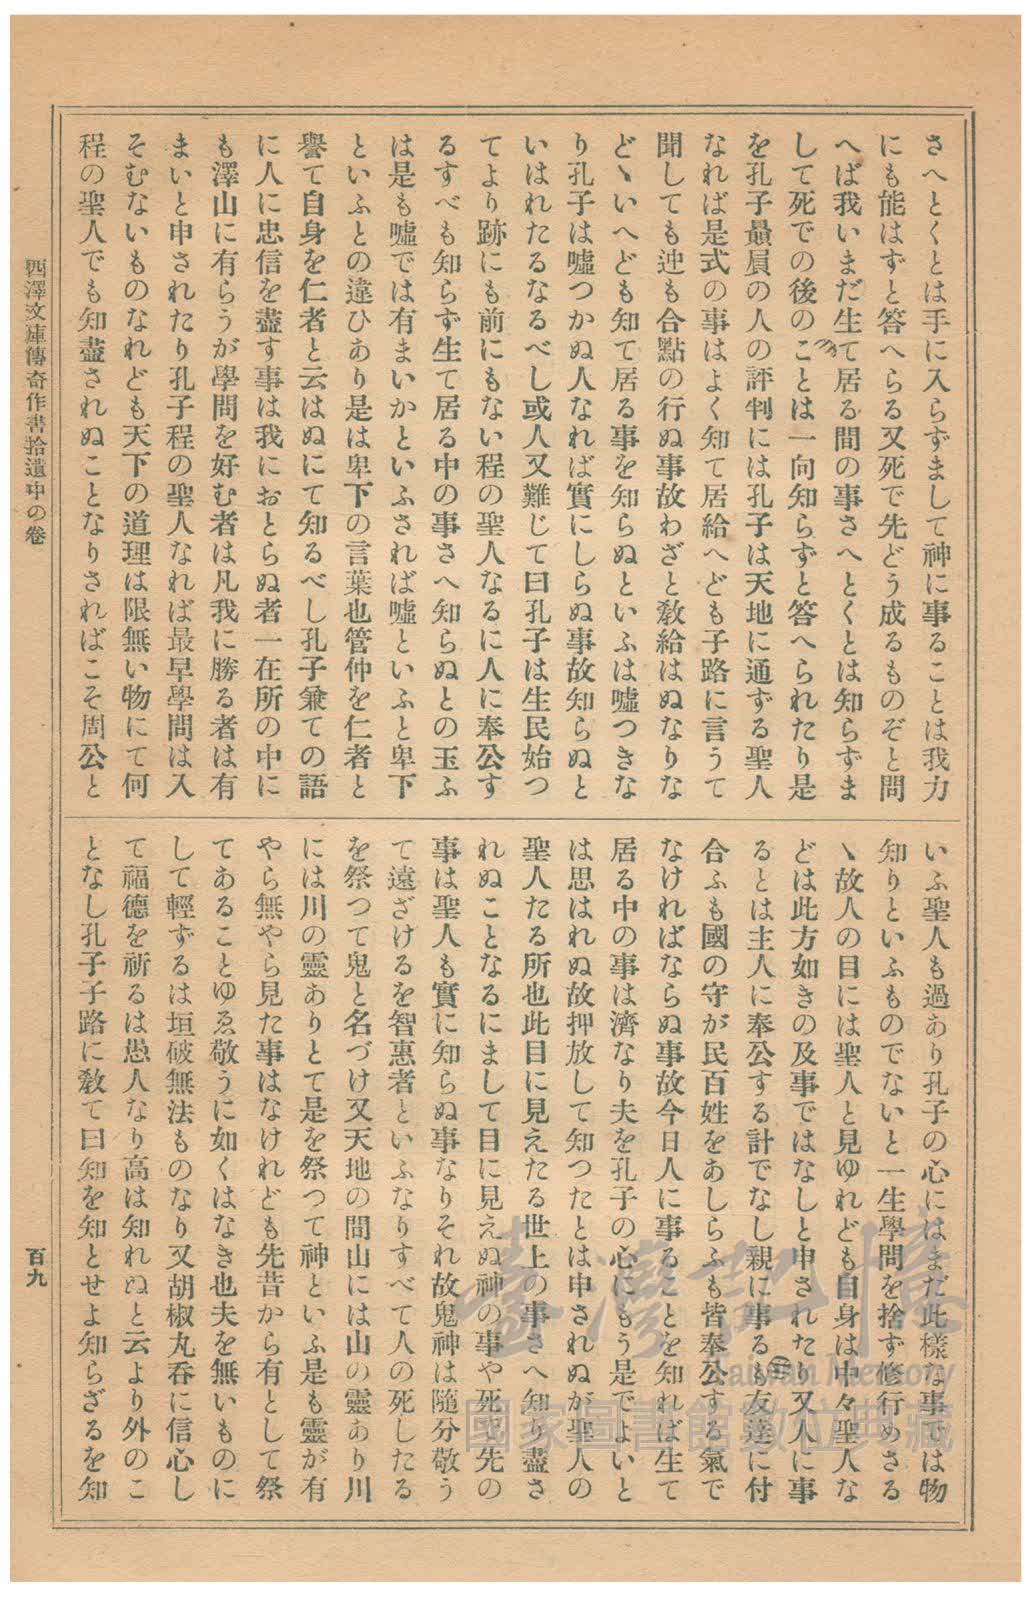 さへとくとは手に入らずまして神に事ることは我力
にも能はずと答へらる又死で先どう成るものぞと問
へば我いまだ生て居る間の事さへとくとは知らずま
して死での後のことは一向知らずと答へられたり是
を孔子贔屓の人の評判には孔子は天地に通ずる聖人
なれば是式の事はよく知て居給へども子路に言うて
聞しても迚も合點の行ぬ事故わざと敎給はぬなりな
どゝいへども知て居る事を知らぬといふは噓つきな
り孔子は噓つかぬ人なれば實にしらぬ事故知らぬと
いはれたるなるべし或人又難じて曰孔子は生民始つ
てより跡にも前にもない程の聖人なるに人に奉公す
るすべも知らず生て居る中の事さへ知らぬとの玉ふ
は是も噓では有まいかといふされば噓といふと卑下
といふとの違ひあり是は卑下の言葉也管仲を仁者と
譽て自身を仁者と云はぬにて知るべし孔子兼ての語
に人に忠信を盡す事は我におとらぬ者一在所の中に
も澤山に有らうが學問を好む者は凡我に勝る者は有
まいと申されたり孔子程の聖人なれば最早學問は入
そむないものなれども天下の道理は限無い物にて何
程の聖人でも知盡されぬことなりさればこそ周公と
いふ聖人も過あり孔子の心にはまだ此樣な事では物
知りといふものでないと一生學問を捨ず修行めさる
ゝ故人の目には聖人と見ゆれども自身は中々聖人な
どは此方如きの及事ではなしと申されたり又人に事
るとは主人に奉公する計でなし親に事るも友達に付
合ふも國の守が民百姓をあしらふも皆奉公する氣で
なければならぬ事故今日人に事ることを知れば生て
居る中の事は濟なり夫を孔子の心にもう是でよいと
は思はれぬ故押放して知つたとは申されぬが聖人の
聖人たる所也此目に見えたる世上の事さへ知り盡さ
れぬことなるにまして目に見えぬ神の事や死で先の
事は聖人も實に知らぬ事なりそれ故鬼神は隨分敬う
て遠ざけるを智惠者といふなりすべて人の死したる
を祭つて鬼と名づけ又天地の間山には山の靈あり川
には川の靈ありとて是を祭つて神といふ是も靈が有
やら無やら見た事はなけれども先昔から有として祭
てあることゆゑ敬うに如くはなき也夫を無いものに
して輕ずるは垣破無法ものなり又胡椒丸呑に信心し
て福德を祈るは愚人なり高は知れぬと云より外のこ
となし孔子子路に敎て曰知を知とせよ知らざるを知
西澤文庫傳奇作書拾遺中の卷
百九
臺灣記憶
Taiwan Memory
國家圖書館數位典藏